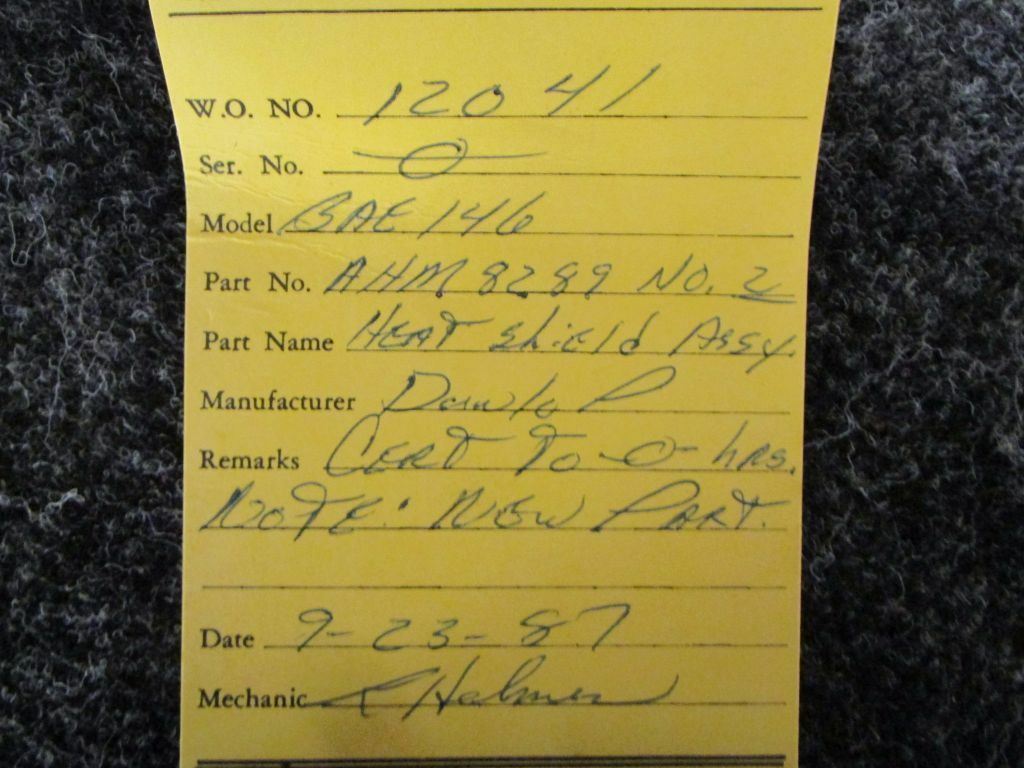 W.O. NO. 12041
Ser. No. -0-
Model BAE 146
Part No. AHM 8289 NO. 2
Part Name HEAT Shield Assy.
Manufacturer
Remarks CERT TO -0- hrs.
NOTE: NEW PART.
Date 9-23-87
Mechanic